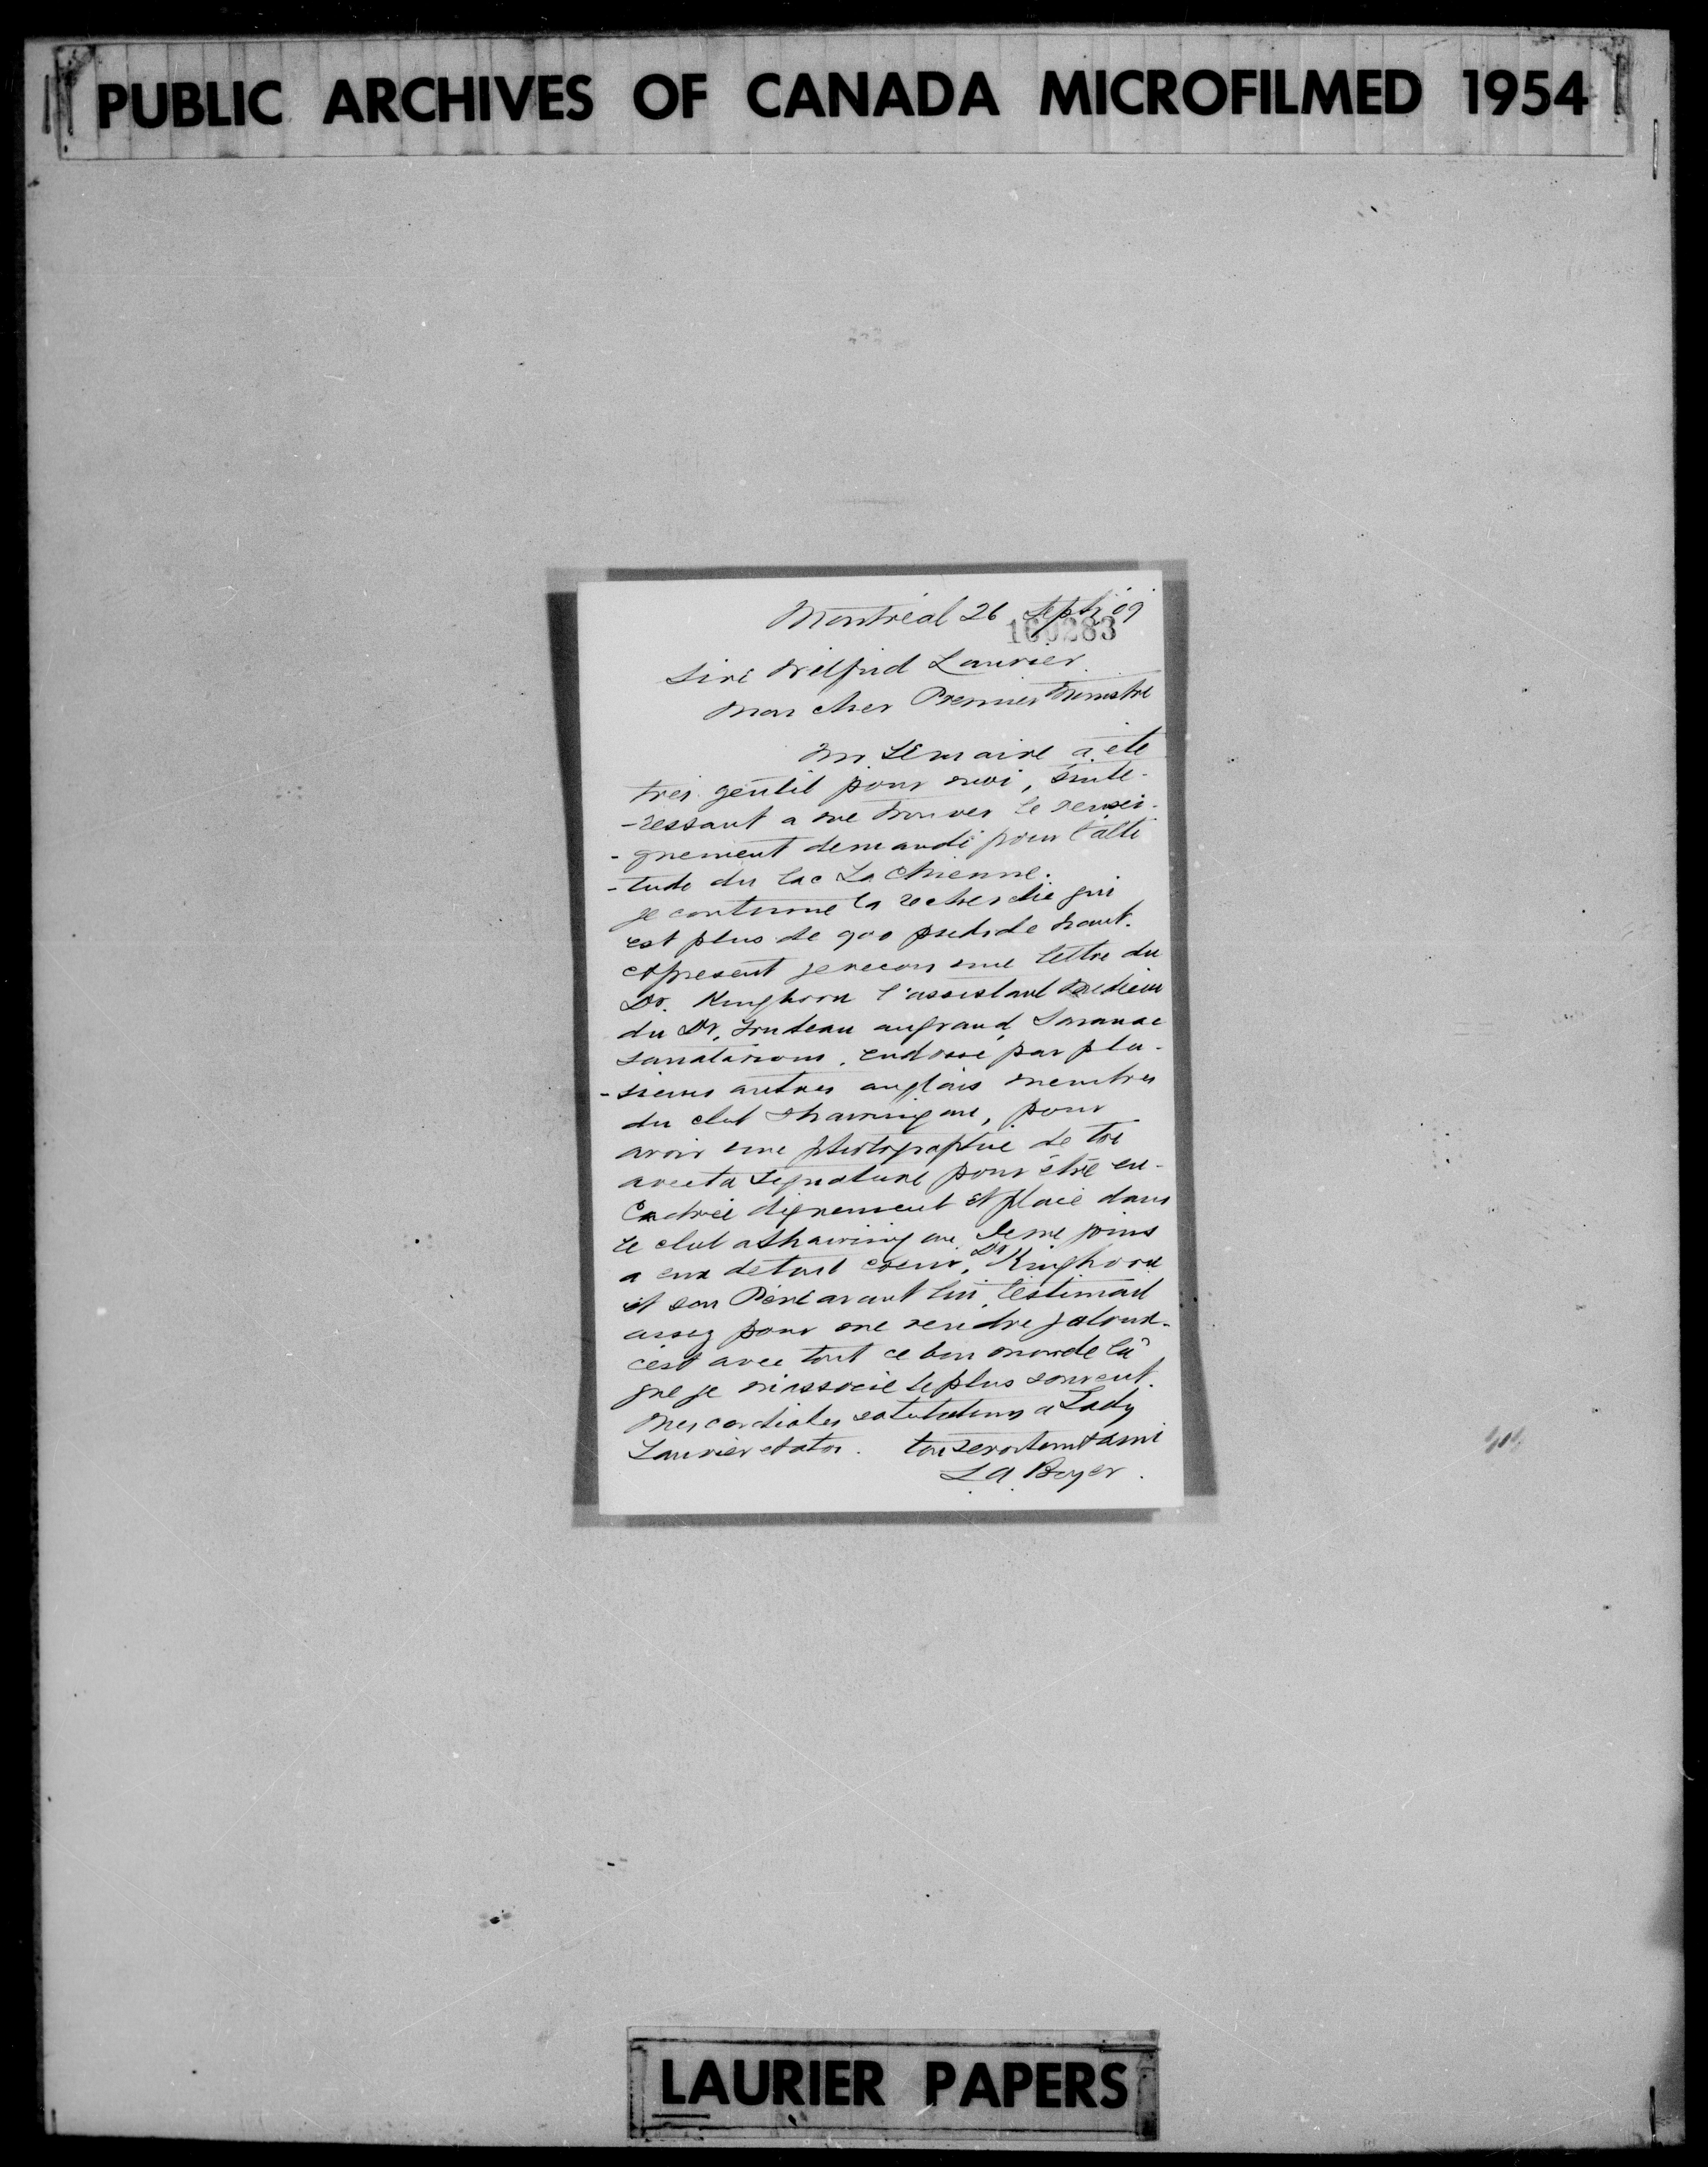 PUBLIC ARCHIVES OF CANADA MICROFILMED 1954
Montréal 26 Sept. 09
160283
Sire Wilfrid Laurier.
Mon cher Premier Ministre
Mr. Lemaire a été
très gentil pour moi, s'inte-
-ressant a me trouver le rensei-
-gnement demandé pour l'alti
-tude du lac La Chienne.
Je continue la recherche qui
est plus de 900 pieds de haut.
Apresent je recois une lettre du
Dr. Kinghorn l'assistant medicin
du Dr. Trudeau au grand Saranac
Sanatarium, endossé par plu-
-sieurs autres anglais membres
du club Shawinigan, pour
avoir une photographie de toi
avec ta signature pour être en-
cadrée dignement et placé dans
le club a Shawinigan. Je me joins
a eux de tout coeur, Dr Kinghorn
et son Père avant lui, t'estimait
assez pour me rendre jaloux.
c'est avec tout ce bon monde là
que je m'associe le plus souvent.
Mes cordiales salutations a Lady
Laurier et a toi. ton ami
L. A. Boyer.
LAURIER PAPERS